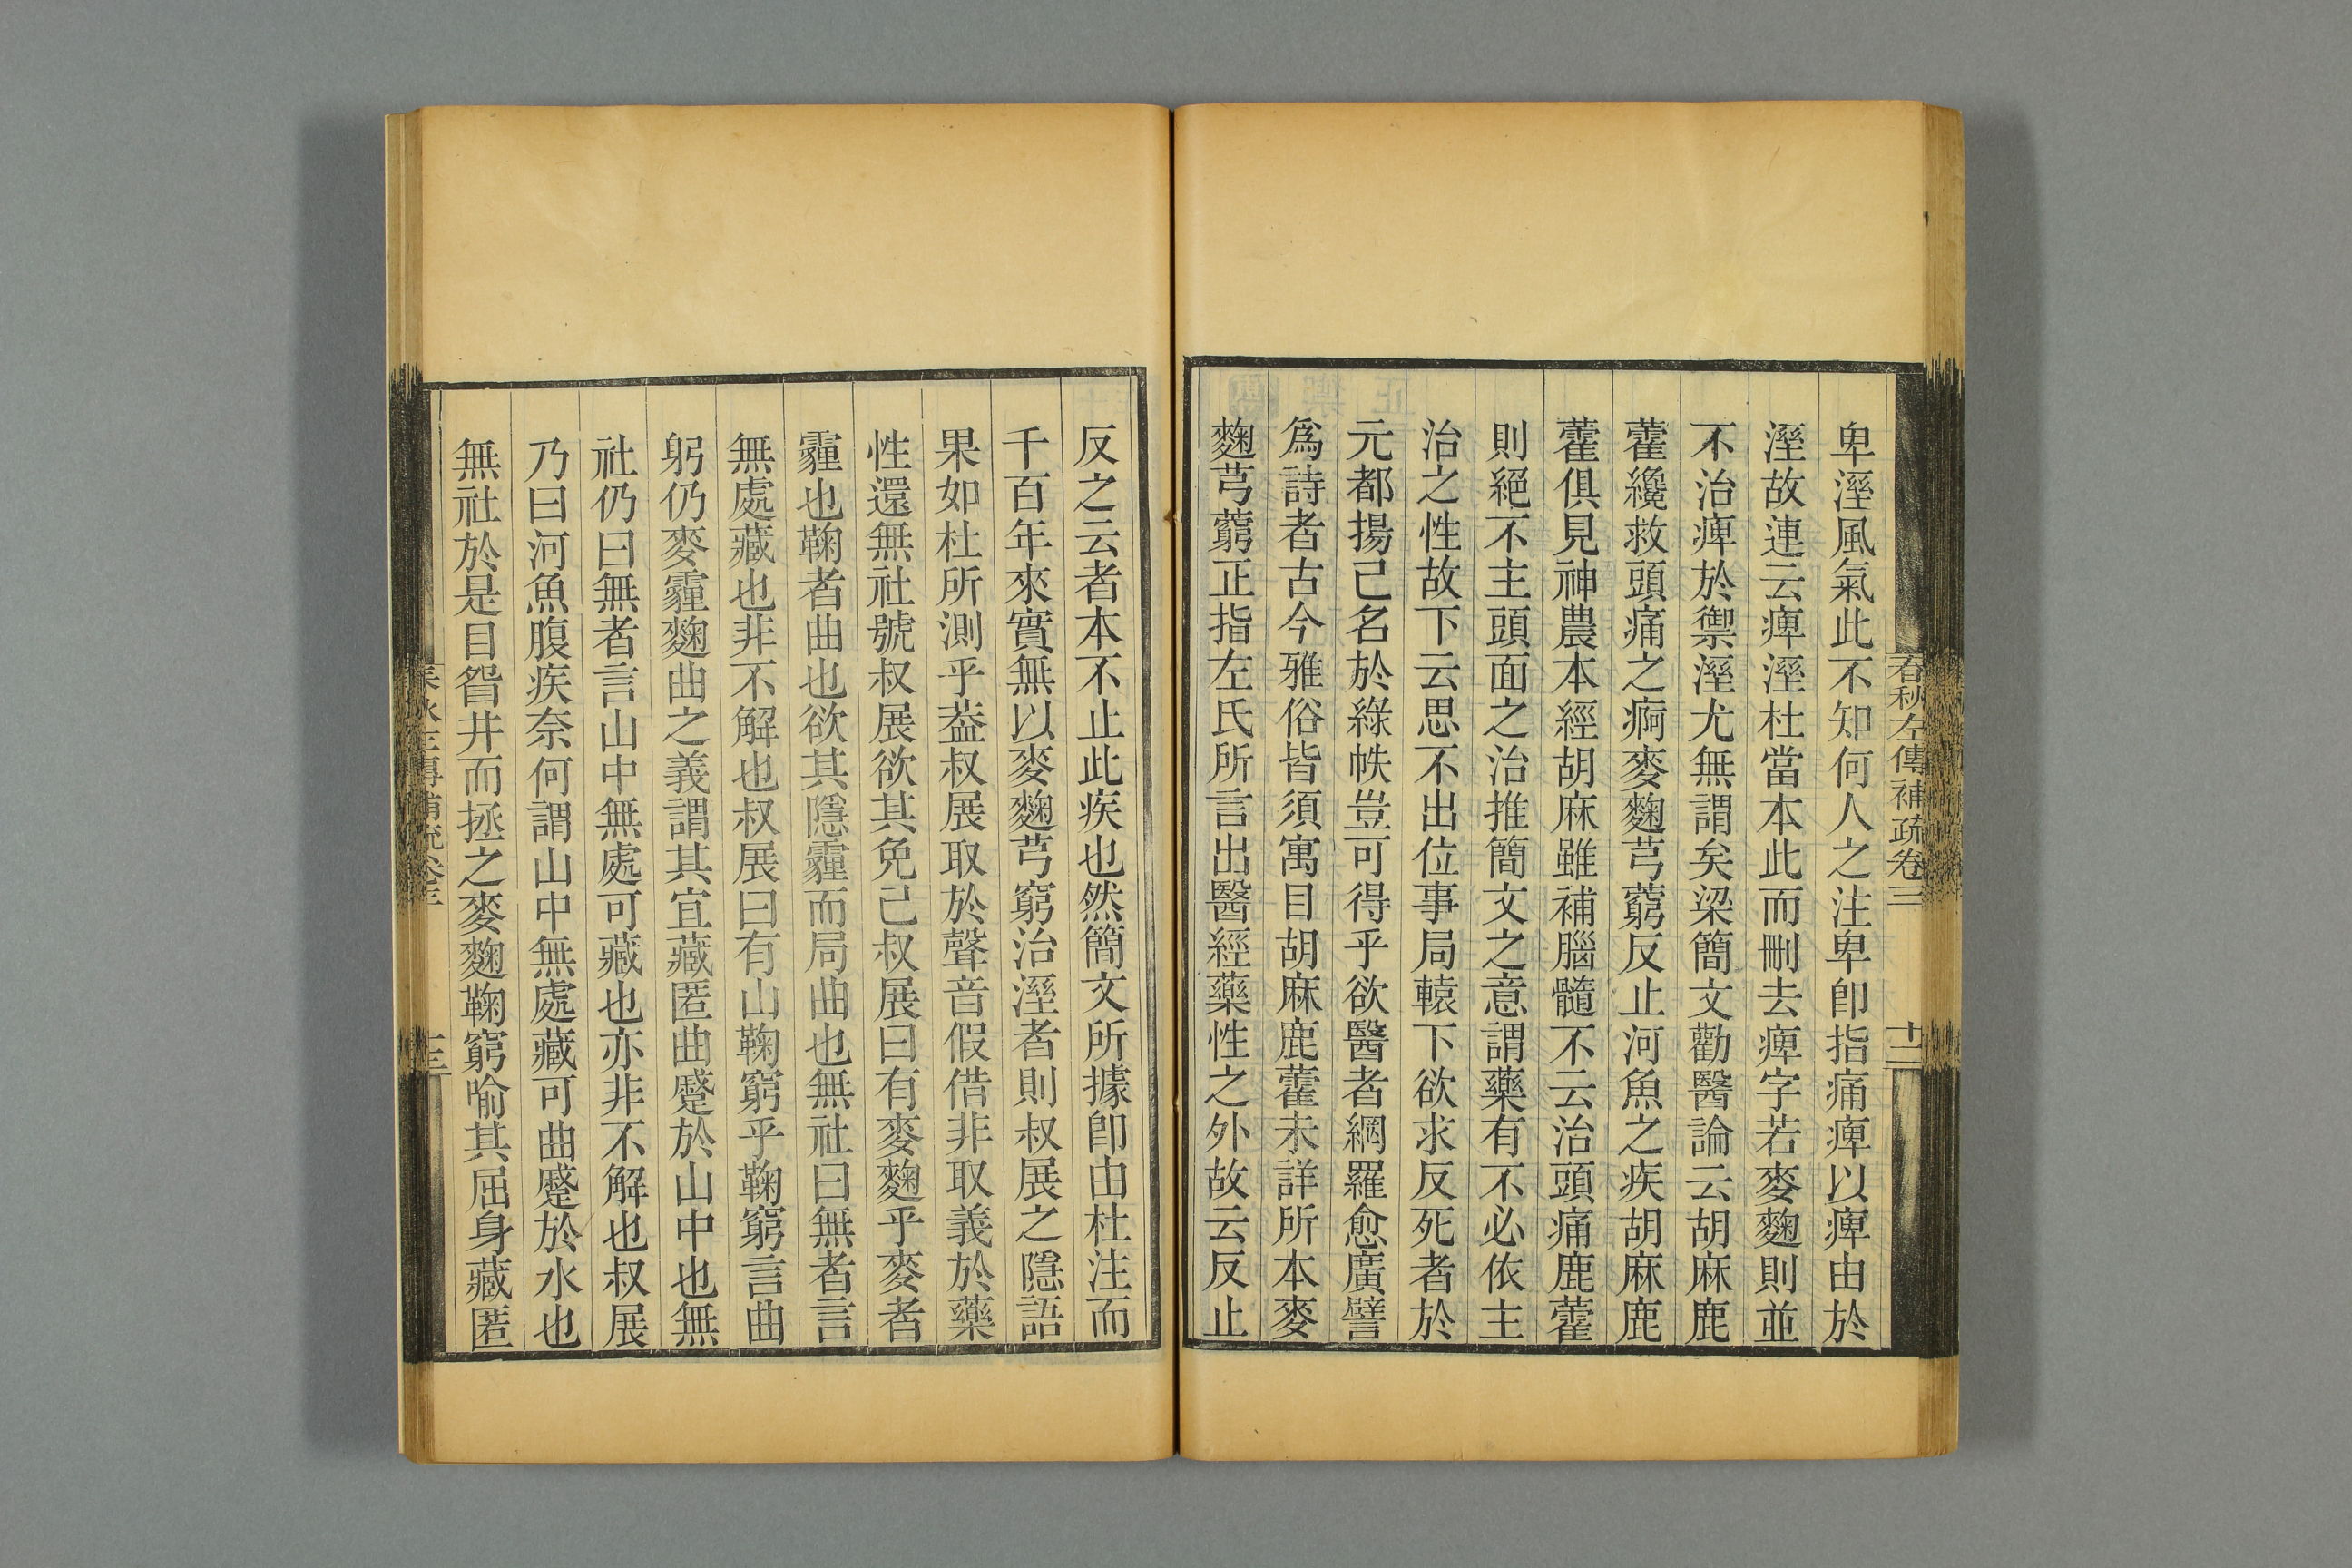 春秋左傳補疏卷三
十二
卑溼風氣此不知何人之注卑卽指痛痺以痺由於
溼故連云痺溼杜當本此而刪去痺字若麥麴則並
不治痺於禦溼尤無謂矣梁簡文勸醫論云胡麻鹿
藿纔救頭痛之痾麥麴芎藭反止河魚之疾胡麻鹿
藿俱見神農本經胡麻雖補腦髓不云治頭痛鹿藿
則絕不主頭面之治推簡文之意謂藥有不必依主
治之性故下云思不出位事局轅下欲求反死者於
元都揚己名於綠帙豈可得乎欲醫者網羅愈廣譬
爲詩者古今雅俗皆須寓目胡麻鹿藿未詳所本麥
麴芎藭正指左氏所言出醫經藥性之外故云反止
反之云者本不止此疾也然簡文所據卽由杜注而
千百年來實無以麥麴芎窮治溼者則叔展之隱語
果如杜所測乎葢叔展取於聲音假借非取義於藥
性還無社號叔展欲其免己叔展曰有麥麴乎麥者
霾也鞠者曲也欲其隱霾而局曲也無社曰無者言
無處藏也非不解也叔展曰有山鞠窮乎鞠窮言曲
躬仍麥霾麴曲之義謂其宜藏匿曲蹙於山中也無
社仍曰無者言山中無處可藏也亦非不解也叔展
乃曰河魚腹疾奈何謂山中無處藏可曲蹙於水也
無社於是目眢井而拯之麥麴鞠窮喻其屈身藏匿
春秋左傳補疏卷三
十三